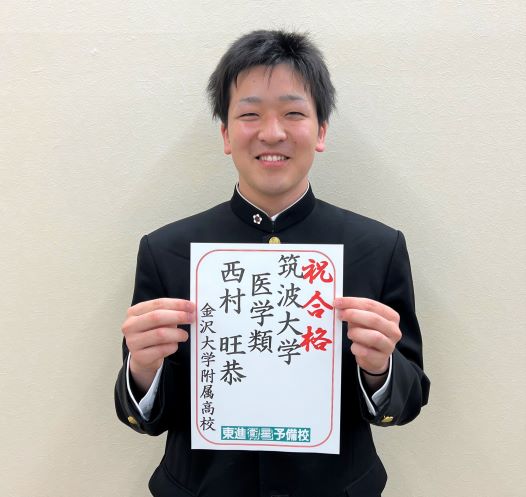 祝合格
筑波大学
医学類
西村 旺恭
金沢大学附属高校
東進衛星予備校